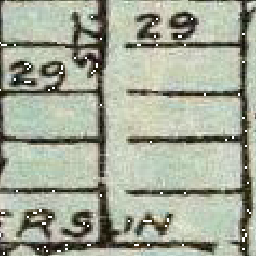 29
ST.
29
ERSON